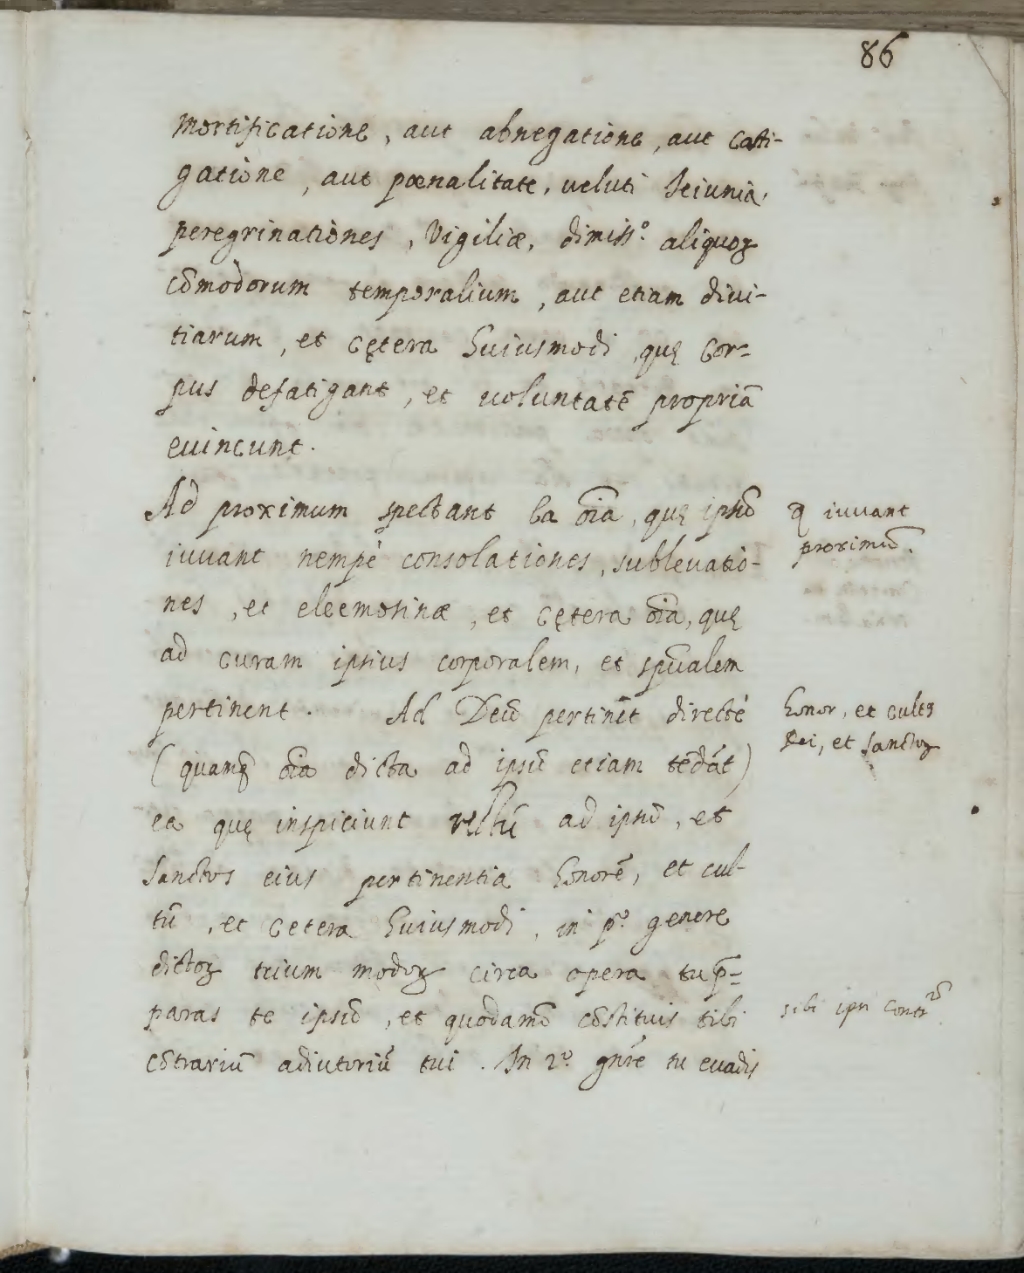 86
mortificatione, aut abnegatione, aut casti-
gatione, aut pœnalitate, veluti Ieiunia,
peregrinationes, Vigiliæ, dimiss.º aliquoꝝ
cōmodorum temporalium, aut etiam divi-
tiarum, et cętera huiusmodi, quę cor=
pus defatigant, et voluntatē propriā
evincunt.
Ad proximum spectant ea oīa, quę ipsū
iuvant nempè consolationes, sublevatio-
nes, et eleemosinæ, et cętera oīa, quę
ad curam ipsius corporalem, et spūalem
pertinent. Ad Deū pertinēt directè
(quamꝗ oīa dicta ad ipsū etiam tēdāt)
ea quę inspiciunt ad ipsū, et
Sanctos eius pertinentia honorē, et cul-
tū, et cetera huiusmodi, in p.º genere
dictoꝝ trium modoꝝ circa opera tu p̄=
paras te ipsū, et quodāmō cōstituis tibi
cōtrariū adiutoriū tui. In 2.º gn̄re tu evadis
q̄ iuvant
proximū.
honor, et cultꝰ
Dei, et Sanctoꝝ
sibi ipsi